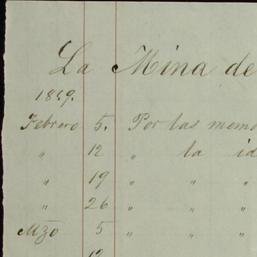 La Mina de
1859.
Febrero 5. Por las memo
" 12 " la id
" 19 " "
" 26 " " "
Mzo 5 " " "
12